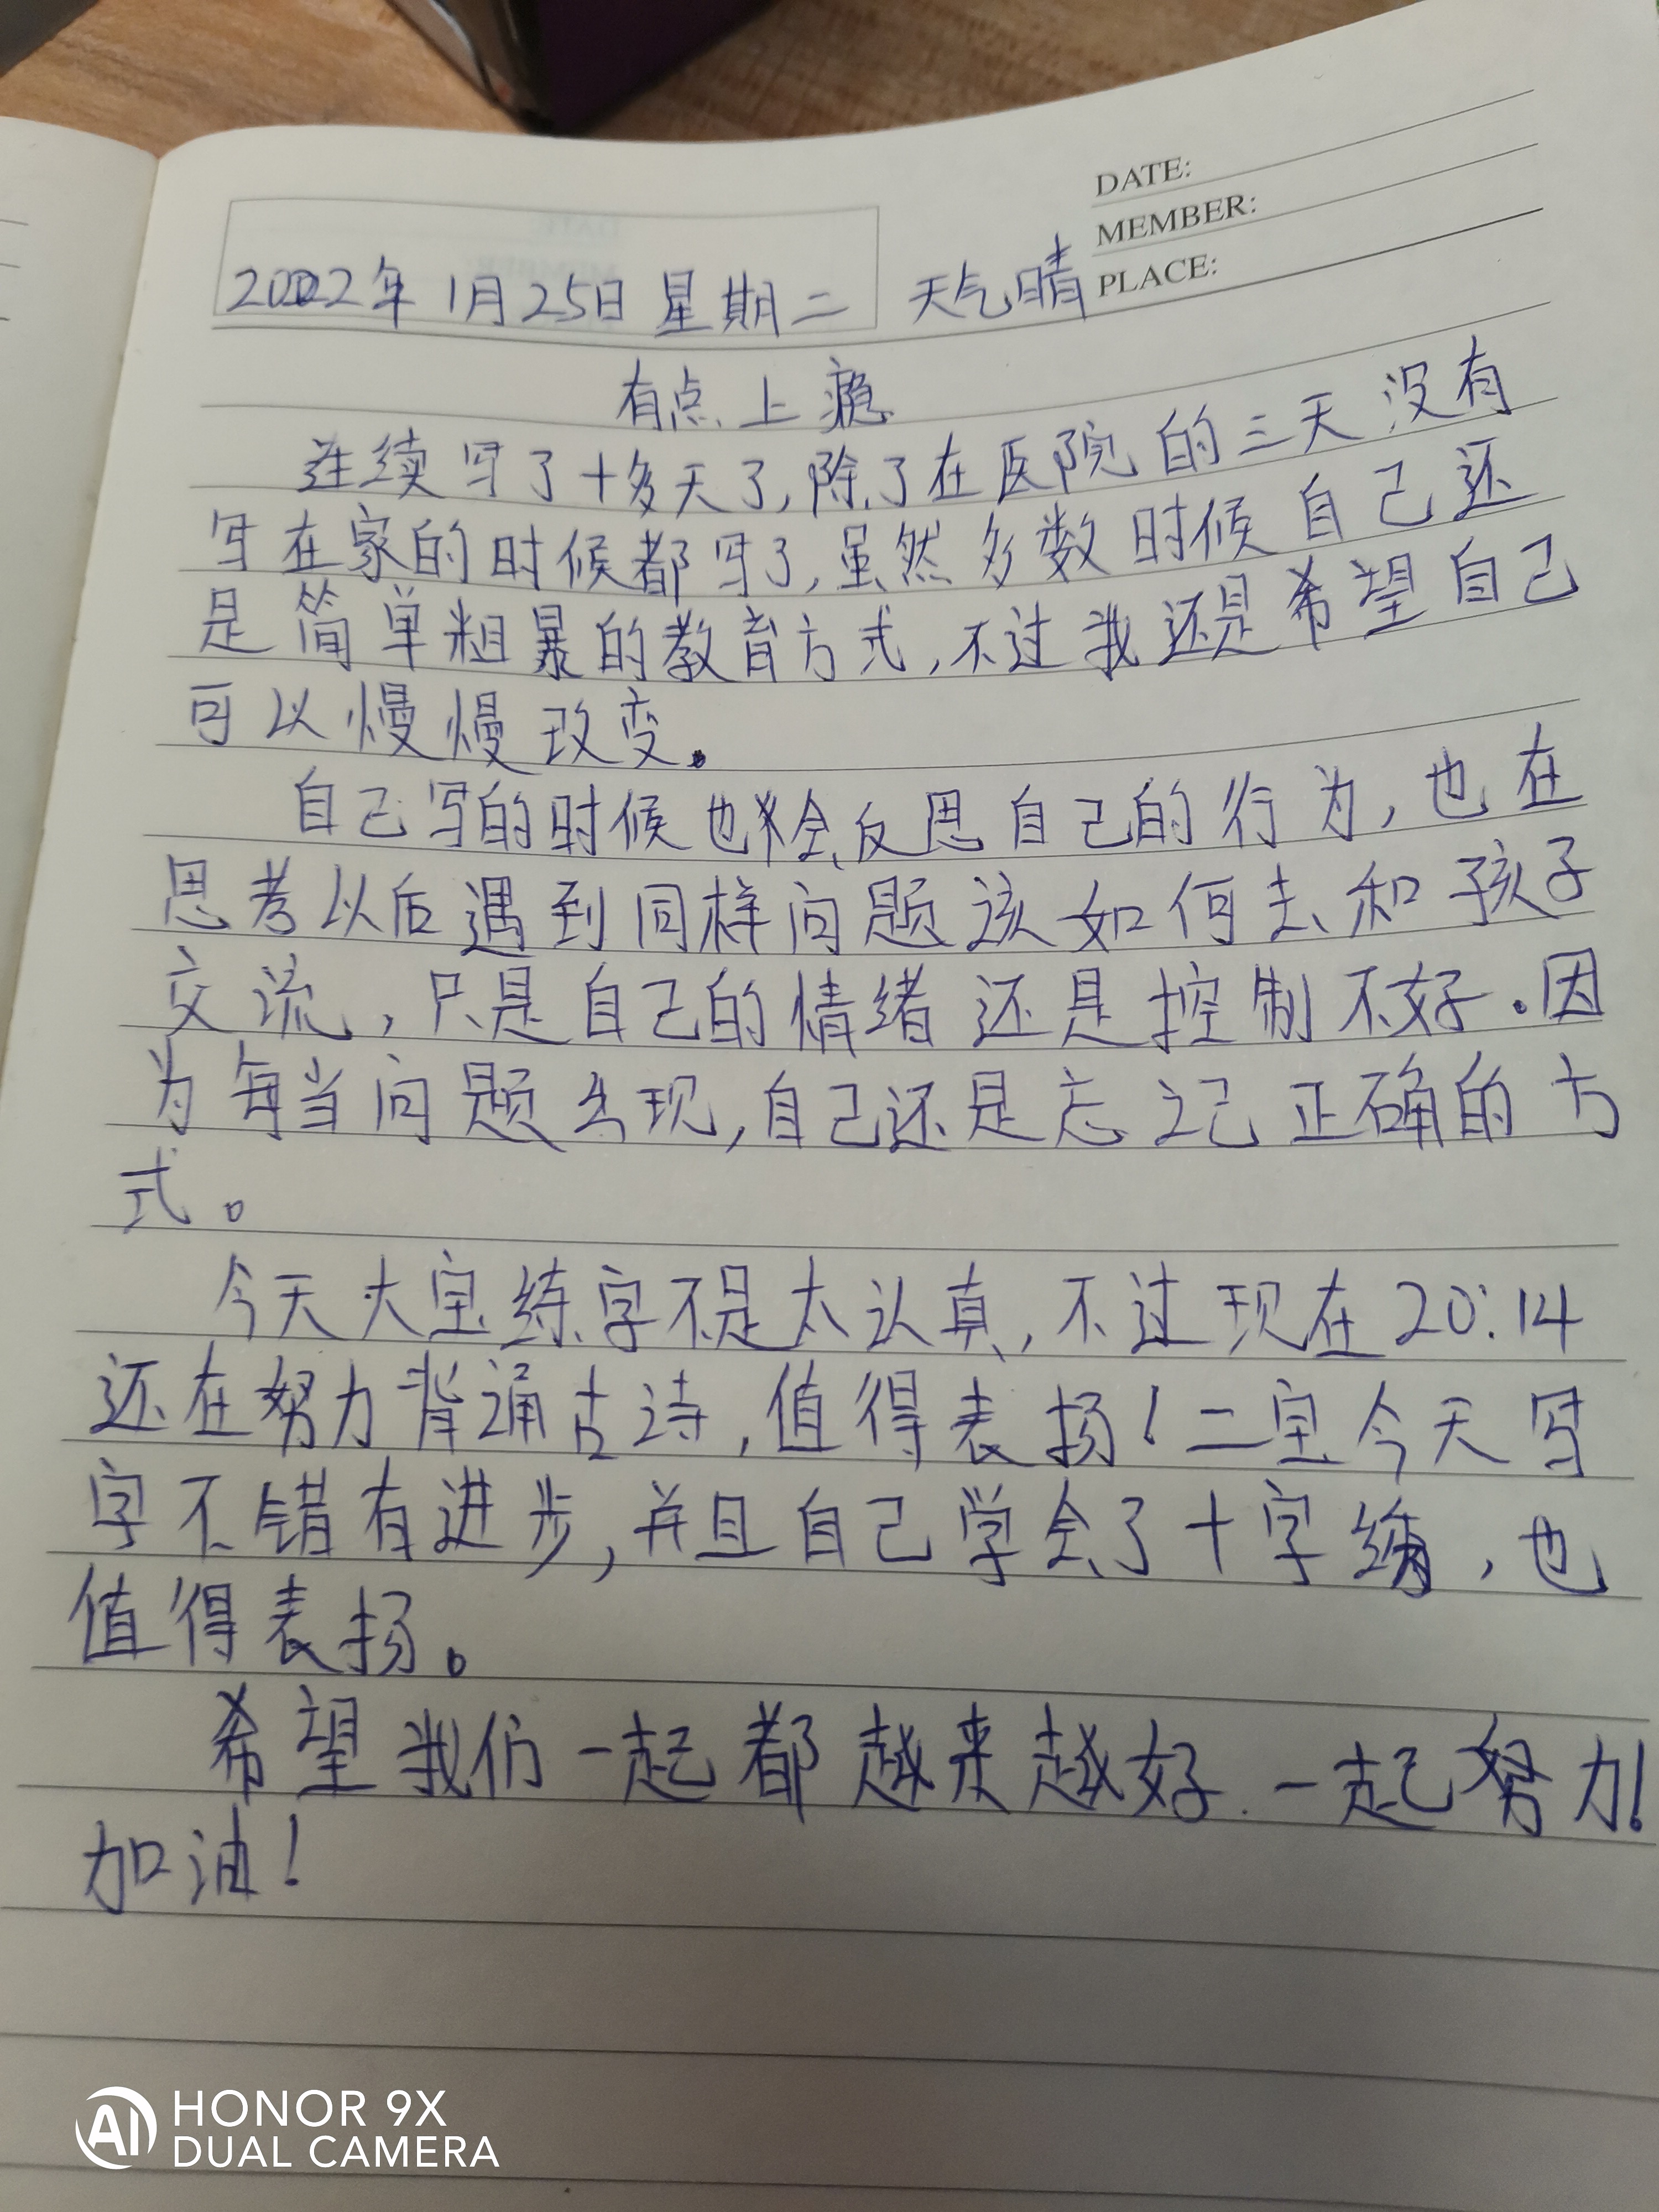 DATE:
MEMBER:
PLACE:
2022年1月25日 星期二 天气晴
有点上瘾
连续写了十多天了,除了在医院的三天没有
写在家的时候都写了,虽然多数时候自己还
是简单粗暴的教育方式,不过我还是希望自己
可以慢慢改变。
自己写的时候也会反思自己的行为,也在
思考以后遇到同样问题该如何去和孩子
交流,只是自己的情绪还是控制不好.因
为每当问题出现,自己还是忘记正确的方
式。
今天大宝练字不是太认真,不过现在20:14
还在努力背诵古诗,值得表扬!二宝今天写
字不错有进步,并且自己学会了十字绣,也
值得表扬。
希望我们一起都越来越好.一起努力!
加油!
AI HONOR 9X
DUAL CAMERA